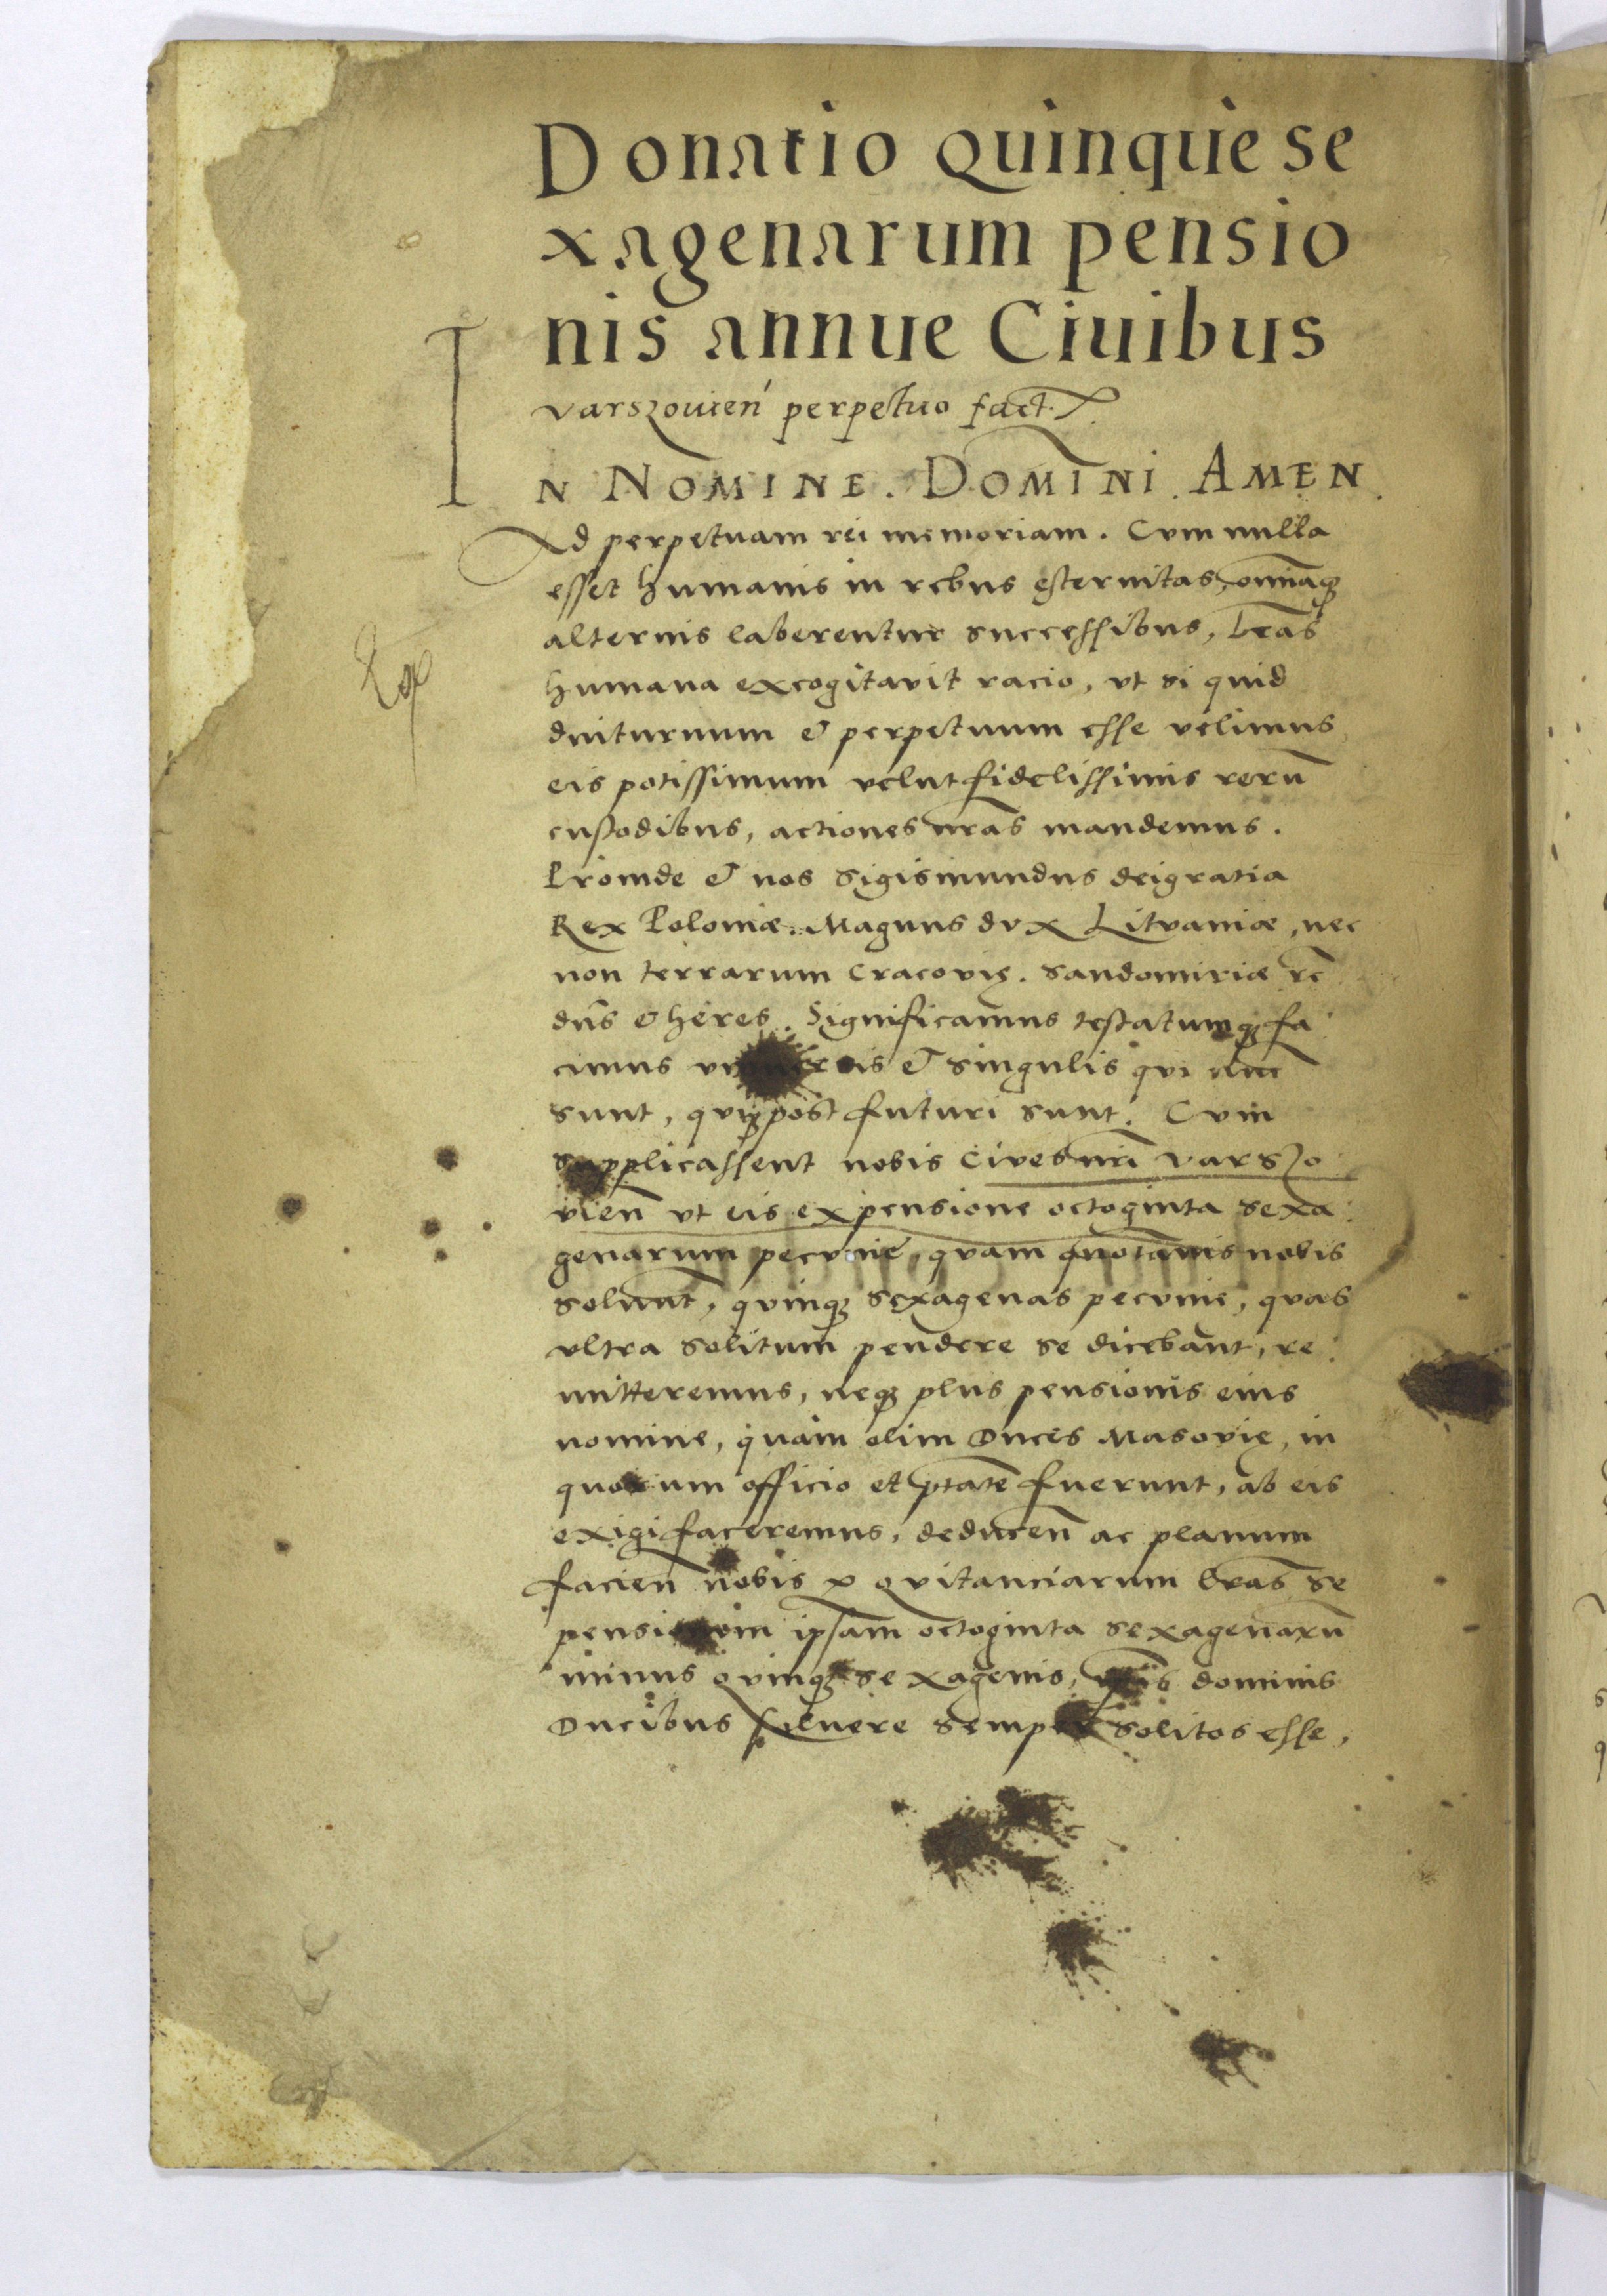 Donatio Quinque se
xagenarum pensio
nis annue Ciuibus
varszouien̄ perpetuo fact.
IN NOMINE. DOMINI. AMEN.
Ad perpetuam rei memoriam. Cum nulla
esset humanis in rebus ęternitas, omniaq̄ꝫ
alternis laberentur successibus, lr̄as
humana excogitavit racio, vt si quid
diuturnum & perpetuum esse velimus
eis potissimum velut fidelissimis rerū
custodibus, actiones nr̄as mandemus.
Proinde & nos Sigismundus dei gratia
Rex Poloniæ. Magnus dux Lituaniæ, nec
non terrarum Cracovię. Sandomiriæ rc̄
dn̄s & heres. Significamus testatumqꝫ fa
cimus & singulis qui nūc
sunt, quiqꝫ post futuri sunt. Cum
supplicassent nobis Cives nr̄i varszo
vien̄ vt eis ex pensione octoginta sexa
genarum pecunie, quam quotan̄is nobis
solūnt, quinqꝫ sexagenas pecunie, quas
vltra solitum pendere se dicebant, re
mitteremus, neqꝫ plus pensionis eius
nomine, quam olim Duces Masovię, in
quorum officio et p̄tate fuerunt, ab eis
exigi faceremus, deducen̄ ac planum
facien̄ nobis p quitanciarum lr̄as se
pensionem ipsam octoginta sexagenarū
minus quinqꝫ sexagenis, dominis
Ducibus soluere semper solitos esse,